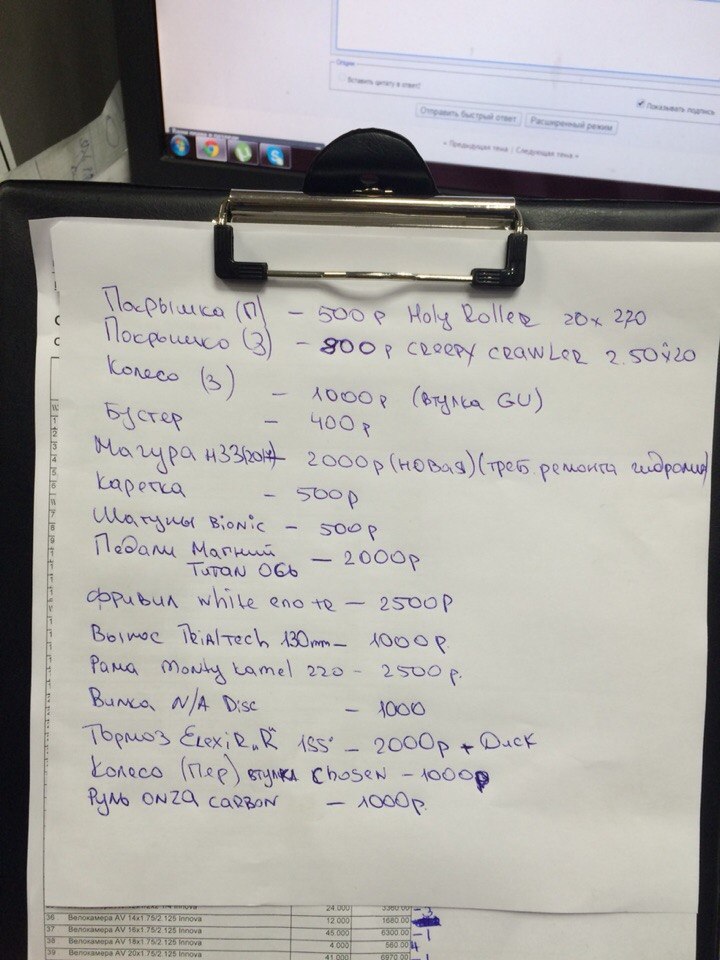 Опции
Вставить цитату в ответ?
Показывать подпись
Отправить быстрый ответ Расширенный режим
« Предыдущая тема | Следующая тема »
Покрышка (П) – 500р Holy Roller 20x 220
Покрышка (З) – 800р CREEPY CRAWLER 2.50x20
Колесо (З)
– 1000р (втулка GU)
Бустер – 400р
Магура H33(2017) – 2000р (НОВАЯ) (треб. ремонта гидролиния)
Каретка – 500р
Шатуны Bionic – 500р
Педали Магний – 2000р
Titan ось
фривил white eno te – 2500р
Вынос Trialtech 130mm – 1000р.
Рама Monty Kamel 220 - 2500р.
Вилка N/A Disc – 1000
Тормоз ElexiR „R“ 185" – 2000р + Диск
Колесо (Пер) втулка Chosen – 1000р
Руль ONZA CARBON – 1000р.
24.000 3360.00 – 3
36 Велокамера AV 14x1.75/2.125 Innova 12.000 1680.00
37 Велокамера AV 16x1.75/2.125 Innova 45.000 6300.00 – 1
38 Велокамера AV 18x1.75/2.125 Innova 4.000 560.00 4
39 Велокамера AV 20x1.75/2.125 Innova 41.000 6970.00 – 1